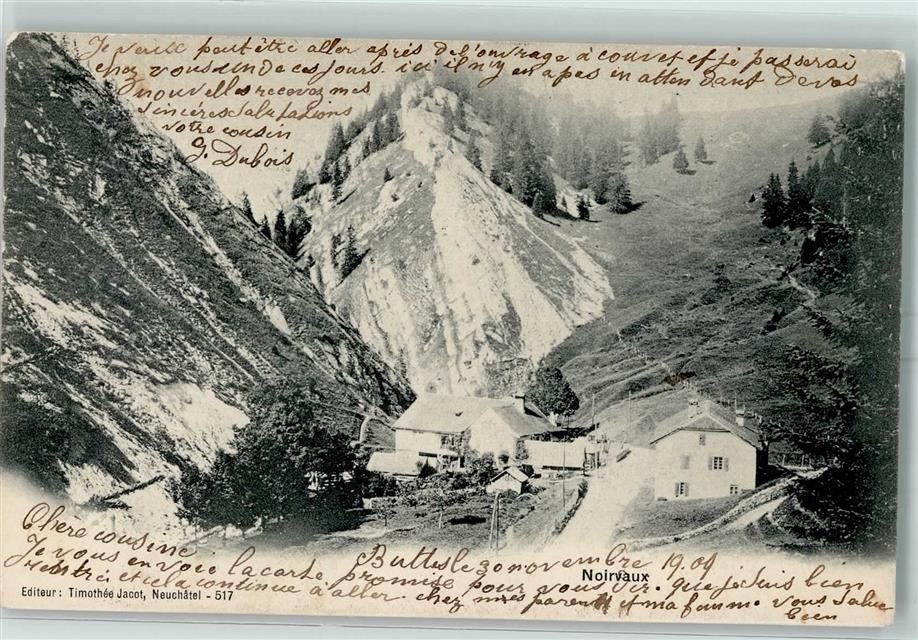 Chere cousine
Buttes le 30 novembre 1909
Je vous envoie la carte promise pour vous dire que je suis bien
rentré et cela continue à aller. chez mes parent et ma femme vous salue
bien
Je verais peut être aller après de l'ouvrage à couvet et je passerai
chez vous un de ces jours. ici il n'y en a pas en attendant de vos
nouvelles recevez mes
sincères salutations
votre cousin
J. Dubois
Noirvaux
Editeur: Timothée Jacot, Neuchâtel - 517